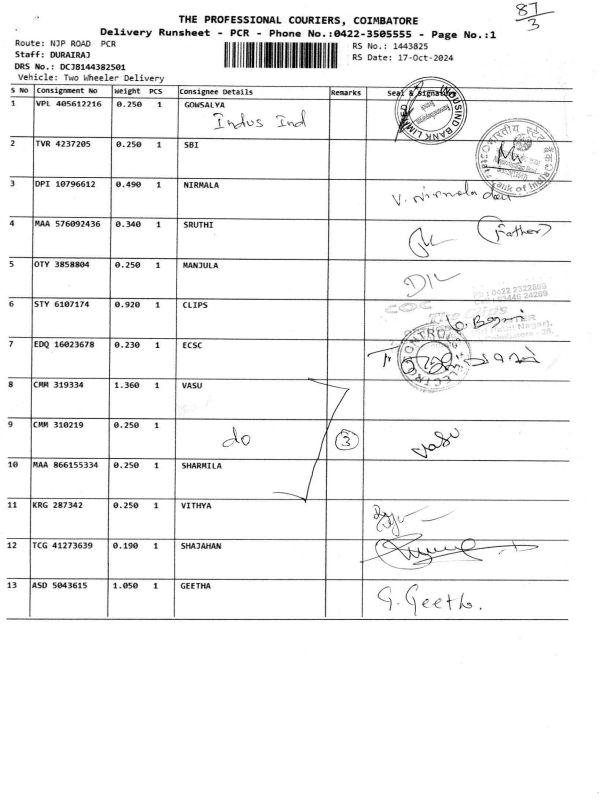 87/3
THE PROFESSIONAL COURIERS, COIMBATORE
Delivery Runsheet - PCR - Phone No.:0422-3505555 - Page No.:1
Route: NJP ROAD PCR
Staff: DURAIRAJ
DRS No.: DCJB144382501
Vehicle: Two Wheeler Delivery
RS No.: 1443825
RS Date: 17-Oct-2024
S No Consignment No Weight PCS Consignee Details Remarks Seal & Signature
1 VPL 405612216 0.250 1 GOWSALYA
Indus Ind
INDUSIND BANK LIMITED
2 TVR 4237205 0.250 1 SBI
भारतीय स्टेट बैंक
Bank of India
3 DPI 10796612 0.490 1 NIRMALA
V. Nirmala devi
4 MAA 576092436 0.340 1 SRUTHI
(Father)
5 OTY 3858804 0.250 1 MANJULA
6 STY 6107174 0.920 1 CLIPS
COC The Clips
7 EDQ 16023678 0.230 1 ECSC
8 CMM 319334 1.360 1 VASU
9 CMM 310219 0.250 1 do 3 Vasu
10 MAA 866155334 0.250 1 SHARMILA
11 KRG 287342 0.250 1 VITHYA
12 TCG 41273639 0.190 1 SHAJAHAN
13 ASD 5043615 1.050 1 GEETHA
G. Geetha.